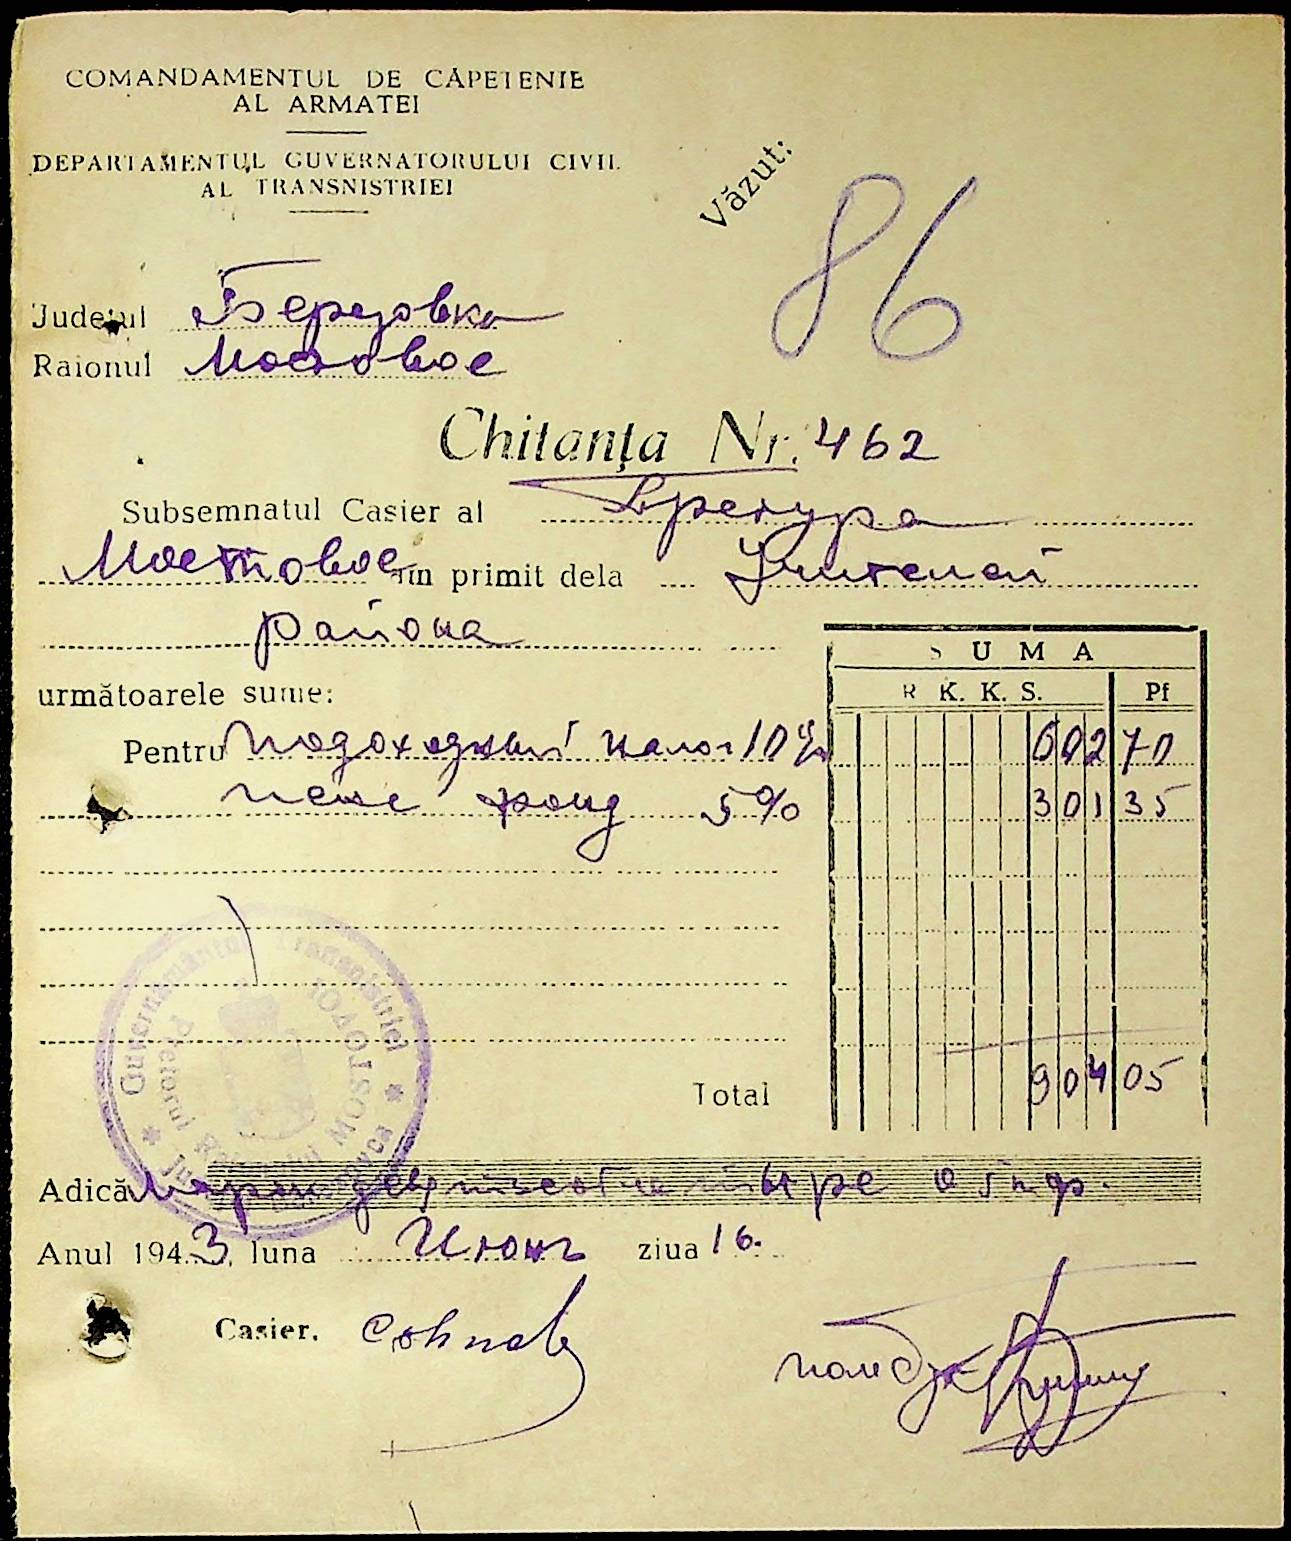 COMANDAMENTUL DE CĂPETENIE
AL ARMATEI
DEPARTAMENTUL GUVERNATORULUI CIVIL
AL TRANSNISTRIEI
Văzut:
86
Județul Березовка
Raionul Мостовое
Chitanța Nr. 462
Subsemnatul Casier al Претура
Мостовое am primit dela
района
următoarele sume:
SUMA
R. K. K. S. Pf
Pentru Подоходный налог 10% 602 70
пенс фонд 5% 301 35
Total 904 05
Guvernământul Transnistriei
Pretorul Raionului MOSTOVOI
Adică марок девятсот четыре 05 пф.
Anul 1943, luna Июнь ziua 16.
Casier,